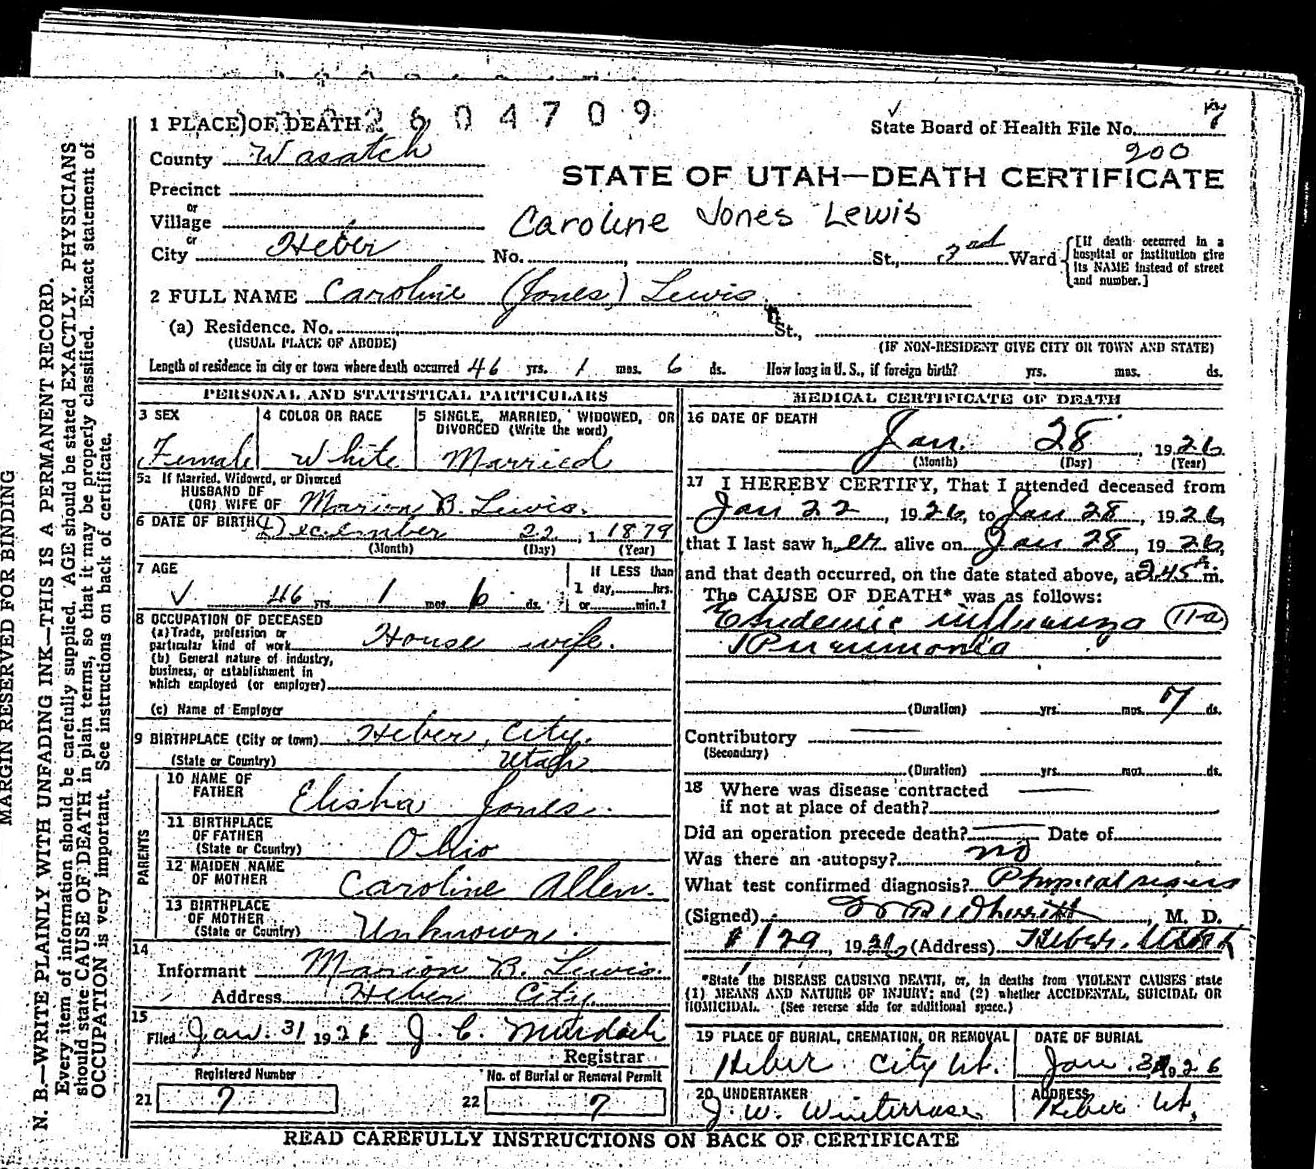 2604709
1 PLACE OF DEATH
State Board of Health File No. 7
200
County Wasatch
STATE OF UTAH—DEATH CERTIFICATE
Precinct
or
Village
Caroline Jones Lewis
or
City Heber No. St., 2nd Ward
[If death occurred in a hospital or institution give its NAME instead of street and number.]
2 FULL NAME Caroline (Jones) Lewis
(a) Residence. No. St.,
(USUAL PLACE OF ABODE) (IF NON-RESIDENT GIVE CITY OR TOWN AND STATE)
Length of residence in city or town where death occurred 46 yrs. 1 mos. 6 ds. How long in U. S., if foreign birth? yrs. mos. ds.
PERSONAL AND STATISTICAL PARTICULARS
3 SEX
Female
4 COLOR OR RACE
White
5 SINGLE, MARRIED, WIDOWED, OR
DIVORCED (Write the word)
Married
5a If Married, Widowed, or Divorced
HUSBAND OF
(OR) WIFE OF Marion B. Lewis.
6 DATE OF BIRTH December 22, 1879
(Month) (Day) (Year)
7 AGE
46 yrs. 1 mos. 6 ds.
If LESS than
1 day, hrs.
or min.?
8 OCCUPATION OF DECEASED
(a) Trade, profession or
particular kind of work House wife.
(b) General nature of industry,
business, or establishment in
which employed (or employer)
(c) Name of Employer
9 BIRTHPLACE (City or town) Heber, City.
(State or Country) Utah
PARENTS
10 NAME OF
FATHER Elisha Jones.
11 BIRTHPLACE
OF FATHER
(State or Country) Ohio
12 MAIDEN NAME
OF MOTHER Caroline Allen.
13 BIRTHPLACE
OF MOTHER
(State or Country) Unknown.
14
Informant Marion B. Lewis
Address Heber City.
15
Filed Jan. 31 1926 J. C. Murdock
Registrar
Registered Number
21 7
No. of Burial or Removal Permit
22 7
MEDICAL CERTIFICATE OF DEATH
16 DATE OF DEATH
Jan. 28, 1926
(Month) (Day) (Year)
17 I HEREBY CERTIFY, That I attended deceased from
Jan 22, 1926, to Jan 28, 1926,
that I last saw her alive on Jan 28, 1926,
and that death occurred, on the date stated above, at 2.45 A m.
The CAUSE OF DEATH* was as follows:
Epidemic influenza 11a
Pneumonia
(Duration) yrs. mos. 7 ds.
Contributory
(Secondary)
(Duration) yrs. mos. ds.
18 Where was disease contracted
if not at place of death?
Did an operation precede death? Date of
Was there an autopsy? no
What test confirmed diagnosis? Physical signs
(Signed) Wherritt, M. D.
1/29, 1926 (Address) Heber, Utah
*State the DISEASE CAUSING DEATH, or, in deaths from VIOLENT CAUSES state
(1) MEANS AND NATURE OF INJURY; and (2) whether ACCIDENTAL, SUICIDAL OR
HOMICIDAL. (See reverse side for additional space.)
19 PLACE OF BURIAL, CREMATION, OR REMOVAL
Heber City Ut.
DATE OF BURIAL
Jan. 31, 1926
20 UNDERTAKER
J. W. Winterrose
ADDRESS
Heber Ut,
READ CAREFULLY INSTRUCTIONS ON BACK OF CERTIFICATE
MARGIN RESERVED FOR BINDING
N. B.—WRITE PLAINLY WITH UNFADING INK—THIS IS A PERMANENT RECORD.
Every item of information should be carefully supplied. AGE should be stated EXACTLY. PHYSICIANS
should state CAUSE OF DEATH in plain terms, so that it may be properly classified. Exact statement of
OCCUPATION is very important. See instructions on back of certificate.